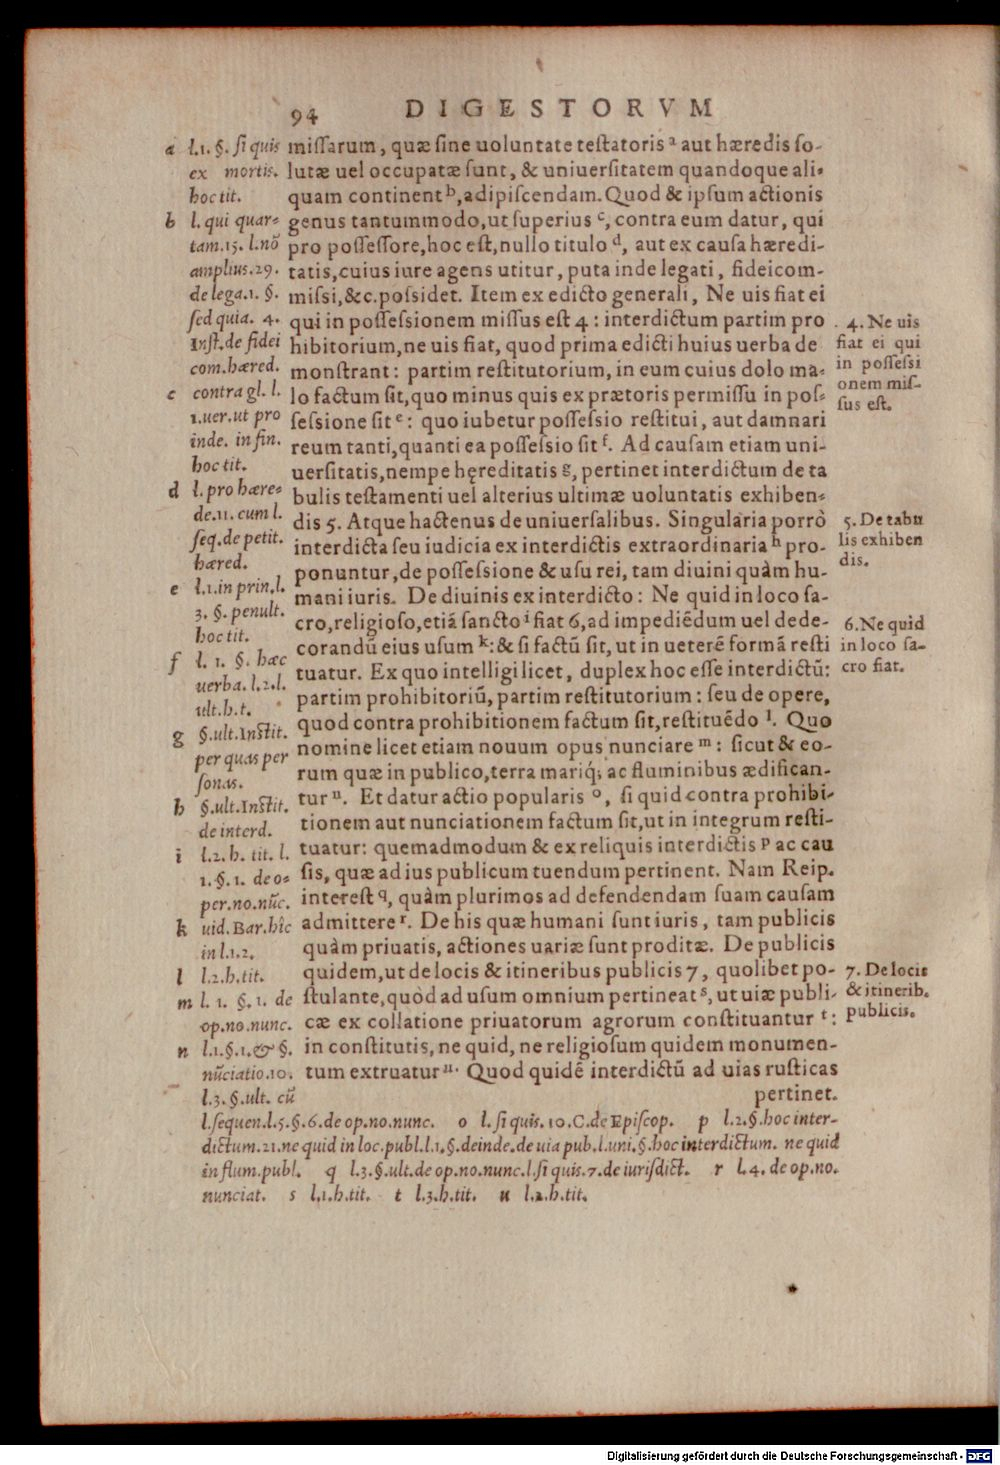 94 DIGESTORVM
missarum, quæ sine uoluntate testatoris a aut hæredis so-
lutæ uel occupatæ sunt, & uniuersitatem quandoque ali-
quam continent b, adipiscendam. Quod & ipsum actionis
genus tantummodo, ut superius c, contra eum datur, qui
pro possessore, hoc est, nullo titulo d, aut ex causa hæredi-
tatis, cuius iure agens utitur, puta inde legati, fideicom-
missi, &c. possidet. Item ex edicto generali, Ne uis fiat ei
qui in possessionem missus est 4: interdictum partim pro
hibitorium, ne uis fiat, quod prima edicti huius uerba de
monstrant: partim restitutorium, in eum cuius dolo ma-
lo factum sit, quo minus quis ex prætoris permissu in pos-
sessione sit e: quo iubetur possessio restitui, aut damnari
reum tanti, quanti ea possessio sit f. Ad causam etiam uni-
uersitatis, nempe hęreditatis g, pertinet interdictum de ta
bulis testamenti uel alterius ultimæ uoluntatis exhiben-
dis 5. Atque hactenus de uniuersalibus. Singularia porrò
interdicta seu iudicia ex interdictis extraordinaria h pro-
ponuntur, de possessione & usu rei, tam diuini quàm hu-
mani iuris. De diuinis ex interdicto: Ne quid in loco sa-
cro, religioso, etiã sancto i fiat 6, ad impediẽdum uel dede-
corandũ eius usum k: & si factũ sit, ut in ueterẽ formã resti
tuatur. Ex quo intelligi licet, duplex hoc esse interdictũ:
partim prohibitoriũ, partim restitutorium: seu de opere,
quod contra prohibitionem factum sit, restituẽdo l. Quo
nomine licet etiam nouum opus nunciare m: sicut & eo-
rum quæ in publico, terra mariq́; ac fluminibus ædifican-
tur n. Et datur actio popularis o, si quid contra prohibi-
tionem aut nunciationem factum sit, ut in integrum resti-
tuatur: quemadmodum & ex reliquis interdictis p ac cau
sis, quæ ad ius publicum tuendum pertinent. Nam Reip.
interest q, quàm plurimos ad defendendam suam causam
admittere r. De his quæ humani sunt iuris, tam publicis
quàm priuatis, actiones uariæ sunt proditæ. De publicis
quidem, ut de locis & itineribus publicis 7, quolibet po-
stulante, quòd ad usum omnium pertineat s, ut uiæ publi-
cæ ex collatione priuatorum agrorum constituantur t:
in constitutis, ne quid, ne religiosum quidem monumen-
tum extruatur u. Quod quidẽ interdictũ ad uias rusticas
pertinet.
a l.1. §. si quis
ex mortis.
hoc tit.
b l. qui quar-
tam.15. l.nõ
amplius.29.
de lega.1. §.
sed quia. 4.
Inst. de fidei
com. hæred.
c contra gl. l.
1.uer. ut pro
inde. in fin.
hoc tit.
d l. pro hære-
de.11. cum l.
seq. de petit.
hæred.
e l.1. in prin. l.
3. §. penult.
hoc tit.
f l. 1. §. hæc
uerba. l.2. l.
ult. h. t.
g §. ult. Instit.
per quas per
sonas.
h §. ult. Instit.
de interd.
i l.2. h. tit. l.
1. §. 1. de o-
per. no. nũc.
k uid. Bar. hîc
in l.1.2.
l l.2. h. tit.
m l. 1. §. 1. de
op. no. nunc.
n l.1. §. 1. & §.
nũciatio.10.
l.3. §. ult. cũ
l. sequen. l.5. §. 6. de op. no. nunc. o l. si quis. 10. C. de Episcop. p l.2. §. hoc inter-
dictum. 21. ne quid in loc. publ. l.1. §. deinde. de uia pub. l. uni. §. hoc interdictum. ne quid
in flum. publ. q l.3. §. ult. de op. no. nunc. l. si quis. 7. de iurisdict. r l. 4. de op. no.
nunciat. s l.1. h. tit. t l.3. h. tit. u l.2. h. tit.
4. Ne uis
fiat ei qui
in possessi
onem mis-
sus est.
5. De tabu
lis exhiben
dis.
6. Ne quid
in loco sa-
cro fiat.
7. De locis
& itinerib.
publicis.
Digitalisierung gefördert durch die Deutsche Forschungsgemeinschaft - DFG